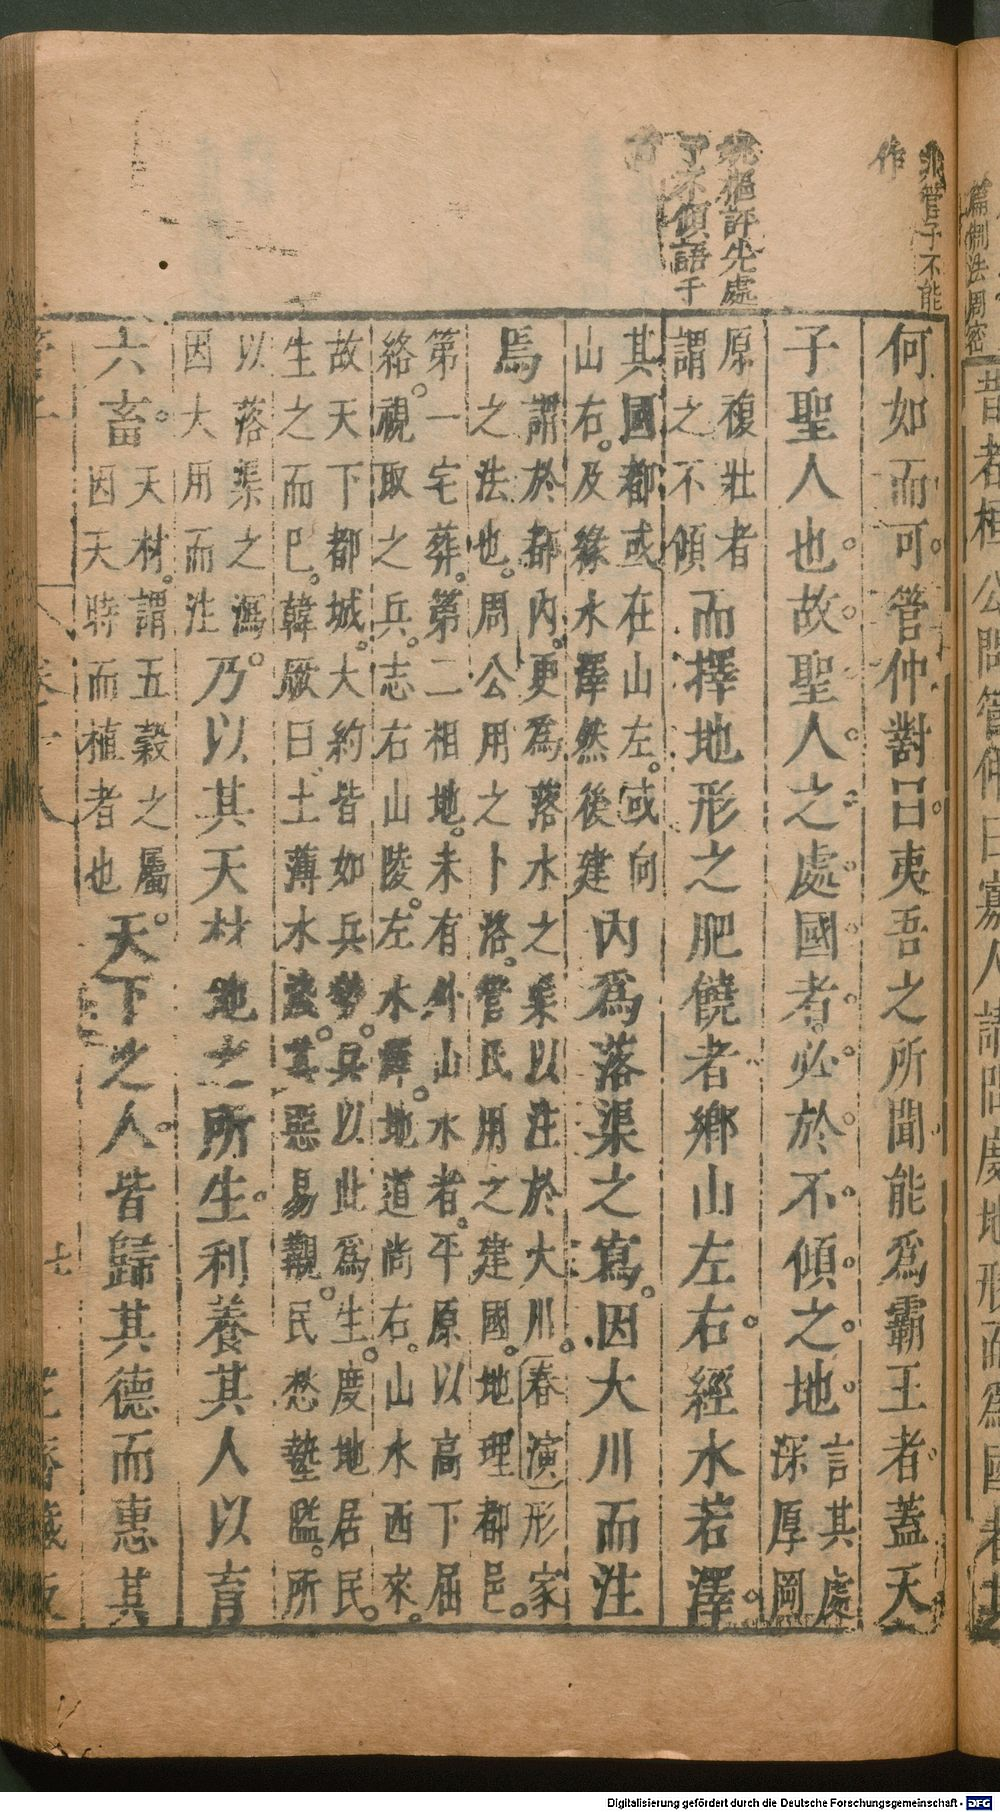 非管子不能
作
姚樞評先處
了不傾語于
何如而可管仲對曰夷吾之所聞能爲霸王者蓋天
子聖人也故聖人之處國者必於不傾之地
言其處
深厚岡
原複壯者
謂之不傾
而擇地形之肥饒者鄉山左右經水若澤
其國都或在山左或向
山右及緣水澤然後建
內爲落渠之寫因大川而注
焉
謂於都內更爲落水之渠以注於大川春演形家
之法也周公用之卜洛管民用之建國地理都邑
第一宅葬第二相地未有外山水者平原以高下屈
絡視取之兵志右山陵左水澤地道尚右山水西來
故天下都城大約皆如兵勢兵以此爲生度地居民
生之而已韓厥曰土薄水淺其惡易覯民愁墊隘所
以落渠之瀉
因大用而注
乃以其天材地之所生利養其人以育
六畜
天材謂五穀之屬
因天時而植者也
天下之人皆歸其德而惠其
七
篇制法周密
昔者桓公問管仲曰寡人請問度地形而爲國者
Digitalisierung gefördert durch die Deutsche Forschungsgemeinschaft - DFG